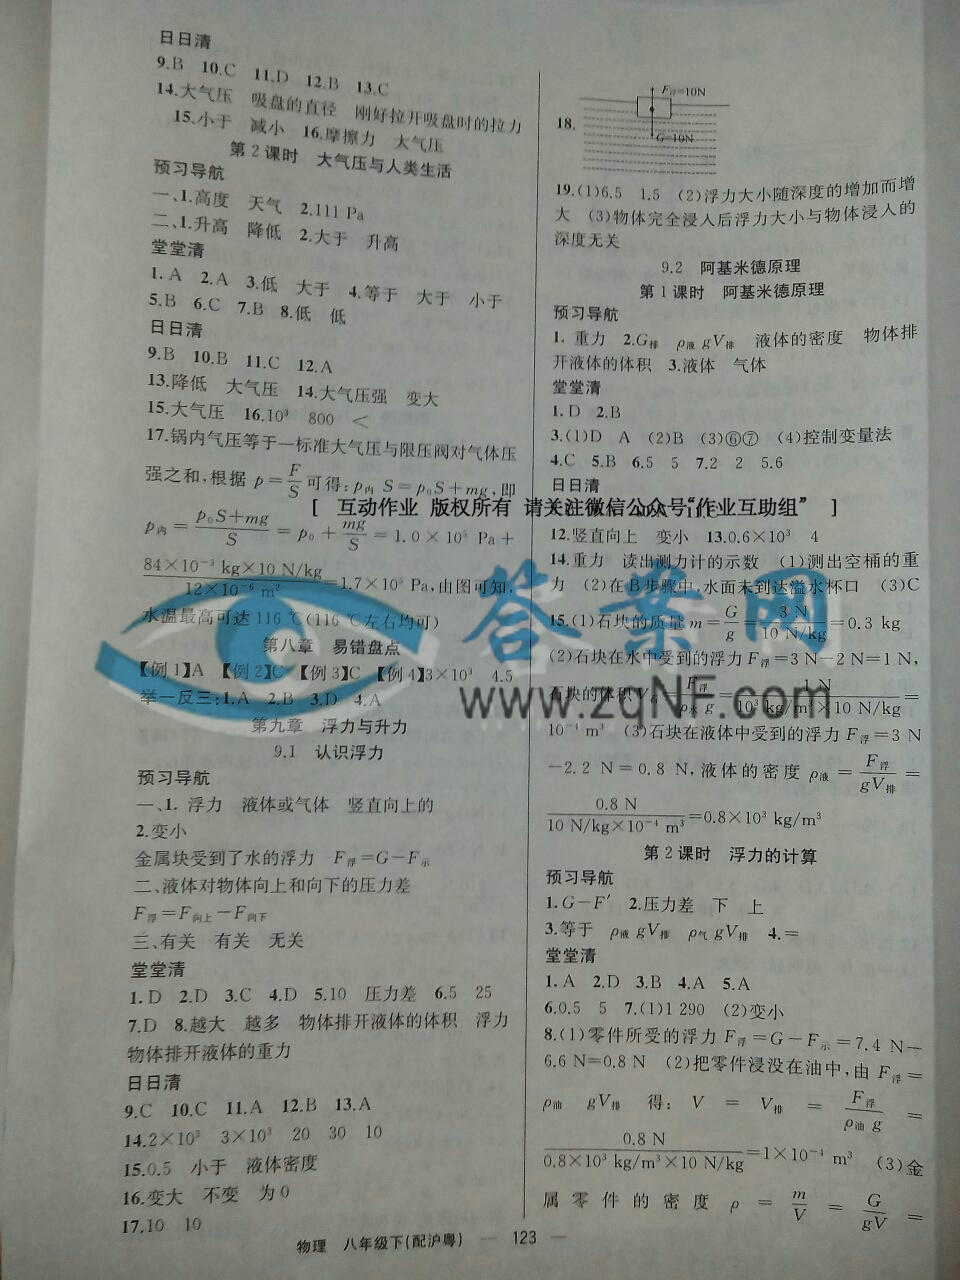 日日清
9.B 10.C 11.D 12.B 13.C
14.大气压 吸盘的直径 刚好拉开吸盘时的拉力
15.小于 减小 16.摩擦力 大气压
第2课时 大气压与人类生活
预习导航
一、1.高度 天气 2.111 Pa
二、1.升高 降低 2.大于 升高
堂堂清
1.A 2.A 3.低 大于 4.等于 大于 小于
5.B 6.C 7.B 8.低 低
日日清
9.B 10.B 11.C 12.A
13.降低 大气压 14.大气压强 变大
15.大气压 16.10³ 800 <
17.锅内气压等于一标准大气压与限压阀对气体压
强之和,根据 p=F/S可得:p内 S=p₀S+mg,即
p内=(p₀S+mg)/S=p₀+mg/S=1.0×10⁵ Pa+
(84×10⁻³ kg×10 N/kg)/(12×10⁻⁶ m²)=1.7×10⁵ Pa,由图可知,
水温最高可达116 ℃(116 ℃左右均可)
第八章 易错盘点
【例1】A 【例2】C 【例3】C 【例4】3×10³ 4.5
举一反三:1.A 2.B 3.D 4.A
第九章 浮力与升力
9.1 认识浮力
预习导航
一、1. 浮力 液体或气体 竖直向上的
2.变小
金属块受到了水的浮力 F浮=G-F示
二、液体对物体向上和向下的压力差
F浮=F向上-F向下
三、有关 有关 无关
堂堂清
1.D 2.D 3.C 4.D 5.10 压力差 6.5 25
7.D 8.越大 越多 物体排开液体的体积 浮力
物体排开液体的重力
日日清
9.C 10.C 11.A 12.B 13.A
14.2×10³ 3×10³ 20 30 10
15.0.5 小于 液体密度
16.变大 不变 为0
17.10 10
F浮=10N
18.
G=10N
19.(1)6.5 1.5 (2)浮力大小随深度的增加而增
大 (3)物体完全浸入后浮力大小与物体浸入的
深度无关
9.2 阿基米德原理
第1课时 阿基米德原理
预习导航
1. 重力 2.G排 ρ液 gV排 液体的密度 物体排
开液体的体积 3.液体 气体
堂堂清
1.D 2.B
3.(1)D A (2)B (3)⑥⑦ (4)控制变量法
4.C 5.B 6.5 5 7.2 2 5.6
日日清
[ 互动作业 版权所有 请关注微信公众号“作业互助组” ]
12.竖直向上 变小 13.0.6×10³ 4
14.重力 读出测力计的示数 (1)测出空桶的重
力 (2)在B步骤中,水面未到达溢水杯口 (3)C
15.(1)石块的质量 m=G/g=3 N/(10 N/kg)=0.3 kg
(2)石块在水中受到的浮力 F浮=3 N-2 N=1 N,
石块的体积V排=F浮/(ρ水 g)=1 N/(10³ kg/m³×10 N/kg)=
10⁻⁴ m³ (3)石块在液体中受到的浮力 F浮=3 N
-2.2 N=0.8 N,液体的密度 ρ液=F浮/(gV排)=
0.8 N/(10 N/kg×10⁻⁴ m³)=0.8×10³ kg/m³
第2课时 浮力的计算
预习导航
1.G-F′ 2.压力差 下 上
3.等于 ρ液 gV排 ρ气 gV排 4.=
堂堂清
1.A 2.D 3.B 4.A 5.A
6.0.5 5 7.(1)1 290 (2)变小
8.(1)零件所受的浮力 F浮=G-F示=7.4 N-
6.6 N=0.8 N (2)把零件浸没在油中,由 F浮=
ρ油 gV排 得: V = V排 = F浮/(ρ油 g) =
0.8 N/(0.8×10³ kg/m³×10 N/kg)=1×10⁻⁴ m³ (3)金
属零件的密度 ρ = m/V = G/(gV) =
物理 八年级下(配沪粤) — 123 —
答案网
www.zqNF.com